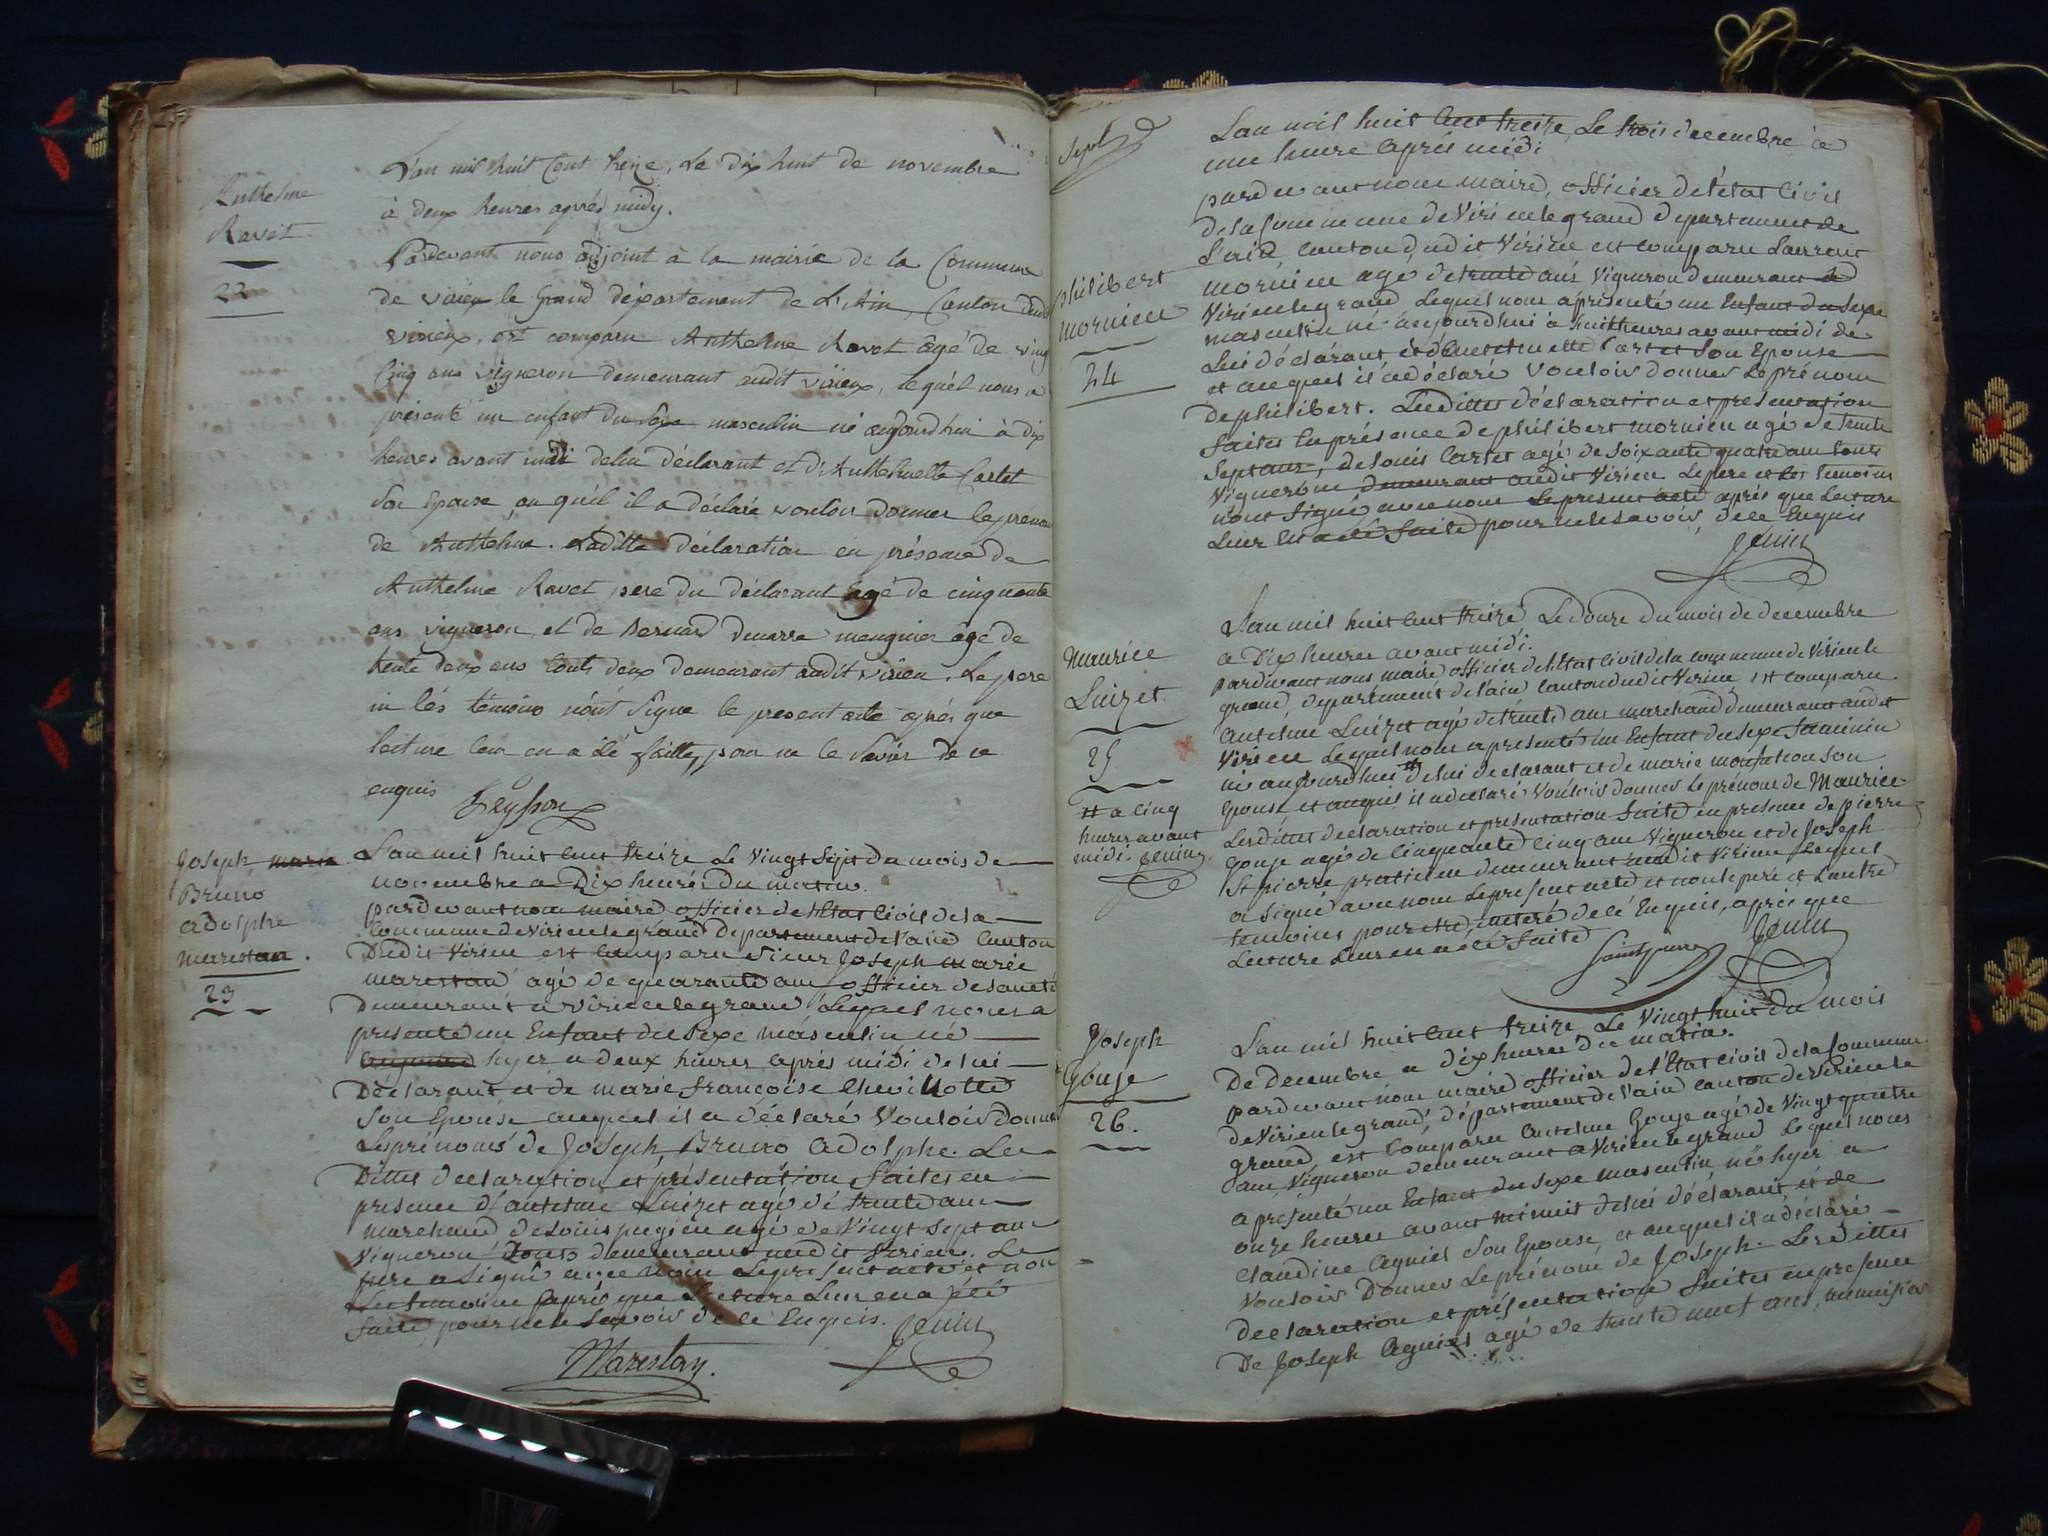 Anthelme
Ravet
22
L'an mil huit Cent treize, Le dix huit de novembre
à deux heures après midy.
Pardevant nous adjoint à la mairie de la Commune
de virieu le Grand département de L'Ain, Canton dudit
virieux, est comparu Anthelme Ravet âgé de vingt
Cinq ans vigneron demeurant audit virieux, lequel nous a
présenté un enfant du Sexe masculin né aujourd'hui à dix
heures avant midi delui déclarant et d'Anthelmette Cartet
Son Epouse, au quél il a déclaré vouloir donner le prenom
de Anthelme. Laditte déclaration en présence de
Anthelme Ravet, pere du déclarant âgé de cinquante
ans vigneron, et de Bernard meugnier âgé de
trente deux ans touts deux demeurant audit virieu. Le pere
ni lés témoins n'ont Signé le present acte après que
lecture leur en a été faitte, pour ne le Savoir de ce
enquis Peysson
Joseph marie
Bruno
adolphe
marestan.
23
L'an mil huit cent treize Le vingt Sept du mois de
novembre a Dix heures du matin.
pardevant nous maire officier de l'Etat Civil de la
Commune de virieu le grand departement de l'ain Canton
Dudit virieu est comparu Sieur Joseph marie
marestan agé de quarante ans officier de Santé
Demeurant a virieu le grand Lequel nous a
présenté un Enfant du Sexe masculin né
hyer a deux heures après midi de lui
Déclarant et de marie françoise Chevillotte
Son Epouse auquel il a déclaré Vouloir Donner
Les prénoms de Joseph Bruno adolphe. Les
Dittes declaration et présentation faites en
presence d'antelme Luizet agé de trente ans
marchand de Louis pugieu agé de vingt Sept ans
vigneron Tous demeurant audit virieu. Le
pere a Signé avec nous Le present acte et non
Les temoins après que Lecture Leur en a été
faite, pour ne le Savoir de ce Enquis. Jenin
Marestan.
Philibert
mornieu
24
L'an mil huit Cent treize, Le trois decembre a
une heure après midi
pardevant nous maire, officier de l'état Civil
de la Commune de Virieu le grand Departement de
L'ain Canton dudit Virieu est comparu Laurent
mornieu agé de trente ans Vigneron demeurant a
Virieu le grand Lequel nous a présenté un Enfant du Sexe
masculin né aujourd'hui à huit heures avant midi de
Lui déclarant et d'anthelmette Cartet Son Epouse
et auquel il a déclaré Vouloir donner Le prénom
de philibert. Lesdittes déclaration et presentation
faites En présence de philibert mornieu agé de trente
Sept ans, de Louis Cartet agé de Soixante quatre ans touts
Vignerons demeurant audit Virieu Le pere et Les temoins
n'ont Signé avec nous Le present acte après que Lecture
Leur En a été faite pour ne le Savoir, de ce Enquis
Jenin
Maurice
Luizet.
25
# a cinq
heures avant
midi. Jenin
L'an mil huit cent treize Le Douze du mois de decembre
a Dix heures avant midi.
pardevant nous maire officier de l'Etat Civil de la commune de Virieu le
grand departement de l'ain Canton dudit Virieu, est comparu
antelme Luizet agé de trente ans marchand demeurant audit
Virieu Lequel nous a presenté un Enfant du Sexe feminin
né aujourd'hui # de lui declarant et de marie Son
Epouse et auquel il a declaré Vouloir donner Le prénom de Maurice
Les dittes declaration et presentation faite en presence de pierre
Gouje agé de Cinquante Cinq ans Vigneron et de Joseph
St pierre praticien demeurant audit Virieu Lequel
a Signé avec nous Le present acte et non Le pere et L'autre
temoins pour etre illeteré de Cé Enquis, après que
Lecture Leur en a été faite Saintpierre Jenin
Joseph
Gouje
26.
L'an mil huit cent treize Le vingt huit du mois
De decembre a dix heures du matin.
pardevant nous maire officier de l'Etat Civil de la Commune
de Virieu le grand, département de l'ain Canton de Virieu le
grand est Comparu antelme Gouje agé de Vingt quatre
ans Vigneron demeurant a Virieu le grand Lequel nous
a présenté un Enfant du Sexe masculin né hyer a
onze heures avant minuit de lui déclarant et de
Claudine Agniel Son Epouse, et auquel il a déclaré
Vouloir Donner Le prénom de Joseph. Lesdittes
declaration et présentation faites en presence
De Joseph Agniel agé de trente neuf ans, menuisier